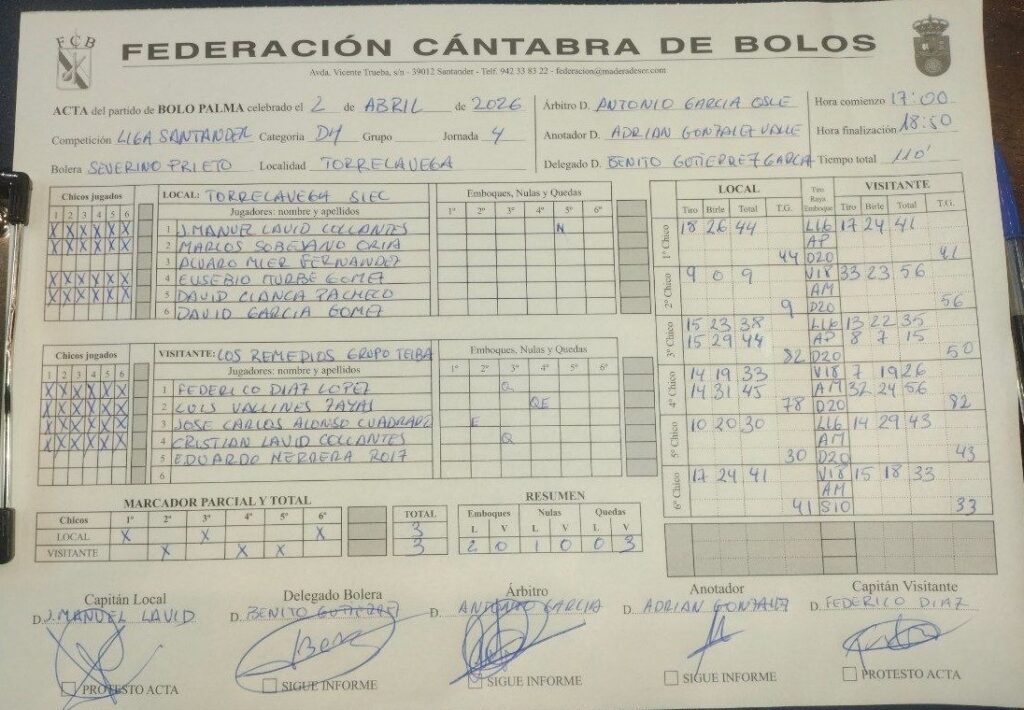 FCB
FEDERACIÓN CÁNTABRA DE BOLOS
Avda. Vicente Trueba, s/n - 39012 Santander - Telf. 942 33 83 22 - federacion@maderadeser.com
ACTA del partido de BOLO PALMA celebrado el 2 de ABRIL de 2026
Competición LIGA SANTANDER Categoria DH Grupo Jornada 4
Bolera SEVERINO PRIETO Localidad TORRELAVEGA
Árbitro D. ANTONIO GARCIA OSLE
Anotador D. ADRIAN GONZALEZ VALLE
Delegado D. BENITO GUTIERREZ GARCIA
Hora comienzo 17:00
Hora finalización 18:50
Tiempo total 110'
Chicos jugados
1 2 3 4 5 6
X X X X X X
X X X X X X
X X X X X X
X X X X X X
LOCAL: TORRELAVEGA SIEC
Jugadores: nombre y apellidos
1 J. MANUEL LAVID COLLANTES
2 MARCOS SOBEJANO ORIA
3 ALVARO MIER FERNANDEZ
4 EUSEBIO ITURBE GOMEZ
5 DAVID CIANCA PACHECO
6 DAVID GARCIA GOMEZ
Emboques, Nulas y Quedas
1º 2º 3º 4º 5º 6º
N
Chicos jugados
1 2 3 4 5 6
X X X X X X
X X X X X X
X X X X X X
X X X X X X
VISITANTE: LOS REMEDIOS GRUPO TEIBA
Jugadores: nombre y apellidos
1 FEDERICO DIAZ LOPEZ
2 LUIS VALLINES ZAYAS
3 JOSE CARLOS ALONSO CUADRADO
4 CRISTIAN LAVID COLLANTES
5 EDUARDO HERRERA ROIZ
6
Emboques, Nulas y Quedas
1º 2º 3º 4º 5º 6º
Q
QE
E
Q
LOCAL Tiro Raya Emboque VISITANTE
Tiro Birle Total T.G. Tiro Birle Total T.G.
1º Chico 18 26 44 L16 17 24 41
AP
44 D20 41
2º Chico 9 0 9 V18 33 23 56
AM
9 D20 56
3º Chico 15 23 38 L16 13 22 35
15 29 44 AP 8 7 15
82 D20 50
4º Chico 14 19 33 V18 7 19 26
14 31 45 AM 32 24 56
78 D20 82
5º Chico 10 20 30 L16 14 29 43
AM
30 D20 43
6º Chico 17 24 41 V18 15 18 33
AM
41 S10 33
MARCADOR PARCIAL Y TOTAL
Chicos 1º 2º 3º 4º 5º 6º TOTAL
LOCAL X X X 3
VISITANTE X X X 3
RESUMEN
Emboques Nulas Quedas
L V L V L V
2 0 1 0 0 3
Capitán Local
D. J. MANUEL LAVID
PROTESTO ACTA
Delegado Bolera
D. BENITO GUTIERREZ
SIGUE INFORME
Árbitro
D. ANTONIO GARCIA
SIGUE INFORME
Anotador
D. ADRIAN GONZALEZ
SIGUE INFORME
Capitán Visitante
D. FEDERICO DIAZ
PROTESTO ACTA